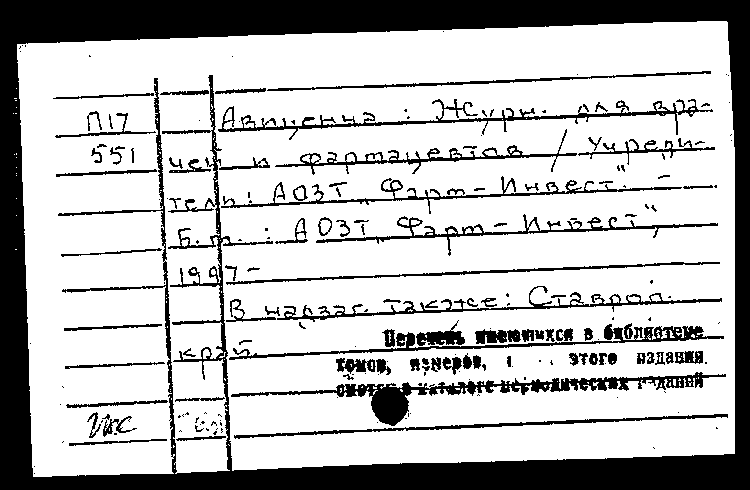 П17 Авиценна : Журн. для вра-
551 чей и фармацевтов / Учреди-
тели: АОЗТ "Фарм-Инвест". -
Б.м. : АОЗТ "Фарм-Инвест",
1997-
В надзаг. также: Ставроп.
край.
Перечень имеющихся в библиотеке
томов, номеров, этого издания
смотри в каталоге периодических изданий